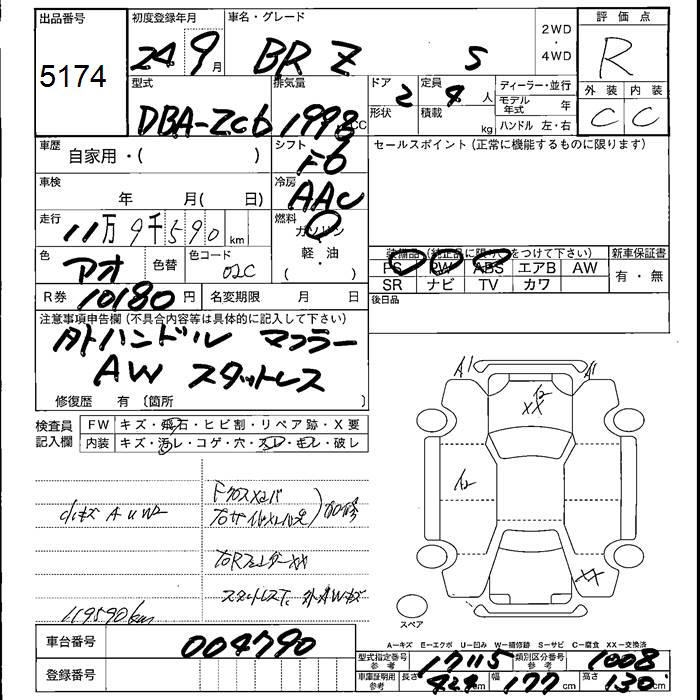 出品番号 初度登録年月 車名・グレード 2WD ・ 4WD 評価点
5174 24 9月 BRZ S R
型式 排気量 ドア 2 定員 4 人 ディーラー・並行 外装 内装
DBA-ZC6 1998 CC 形状 積載 kg モデル年式 年 C C
ハンドル 左・右
車歴 自家用・( ) シフト F6 セールスポイント(正常に機能するものに限ります)
車検 年 月( 日) 冷房 AAC
走行 11万9千590 km 燃料 ガソリン
軽・油
( )
色 アオ 色替 色コード 02C
装備品(純正品に限り○をつけて下さい) 新車保証書
PS PW ABS エアB AW 有・無
SR ナビ TV カワ
R券 10180円 名変期限 月 日 後日品
注意事項申告欄(不具合内容等は具体的に記入して下さい)
外ハンドル マフラー
AW スタットレス
修復歴 有 〔箇所 〕
検査員記入欄 FW キズ・飛石・ヒビ割・リペア跡・X要
内装 キズ・汚レ・コゲ・穴・スレ・キレ・破レ
A1 A1
XX
小キズ A U W2
XX
119590km
スペア
A-キズ E-エクボ U-凹み W-補修跡 S-サビ C-腐食 XX-交換済
車台番号 004790 型式指定番号 参考 17115 類別区分番号 参考 1008
登録番号 車庫証明用 参考 長さ 424 cm 幅 177 cm 高さ 130 cm